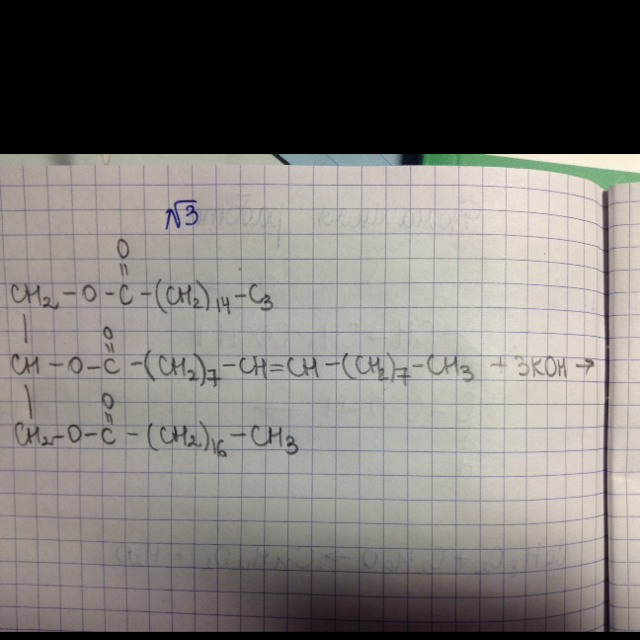 √3
O
||
CH₂ - O - C - (CH₂)₁₄ - C₃
| O
||
CH - O - C - (CH₂)₇ - CH = CH - (CH₂)₇ - CH₃ + 3KOH →
| O
||
CH₂ - O - C - (CH₂)₁₆ - CH₃